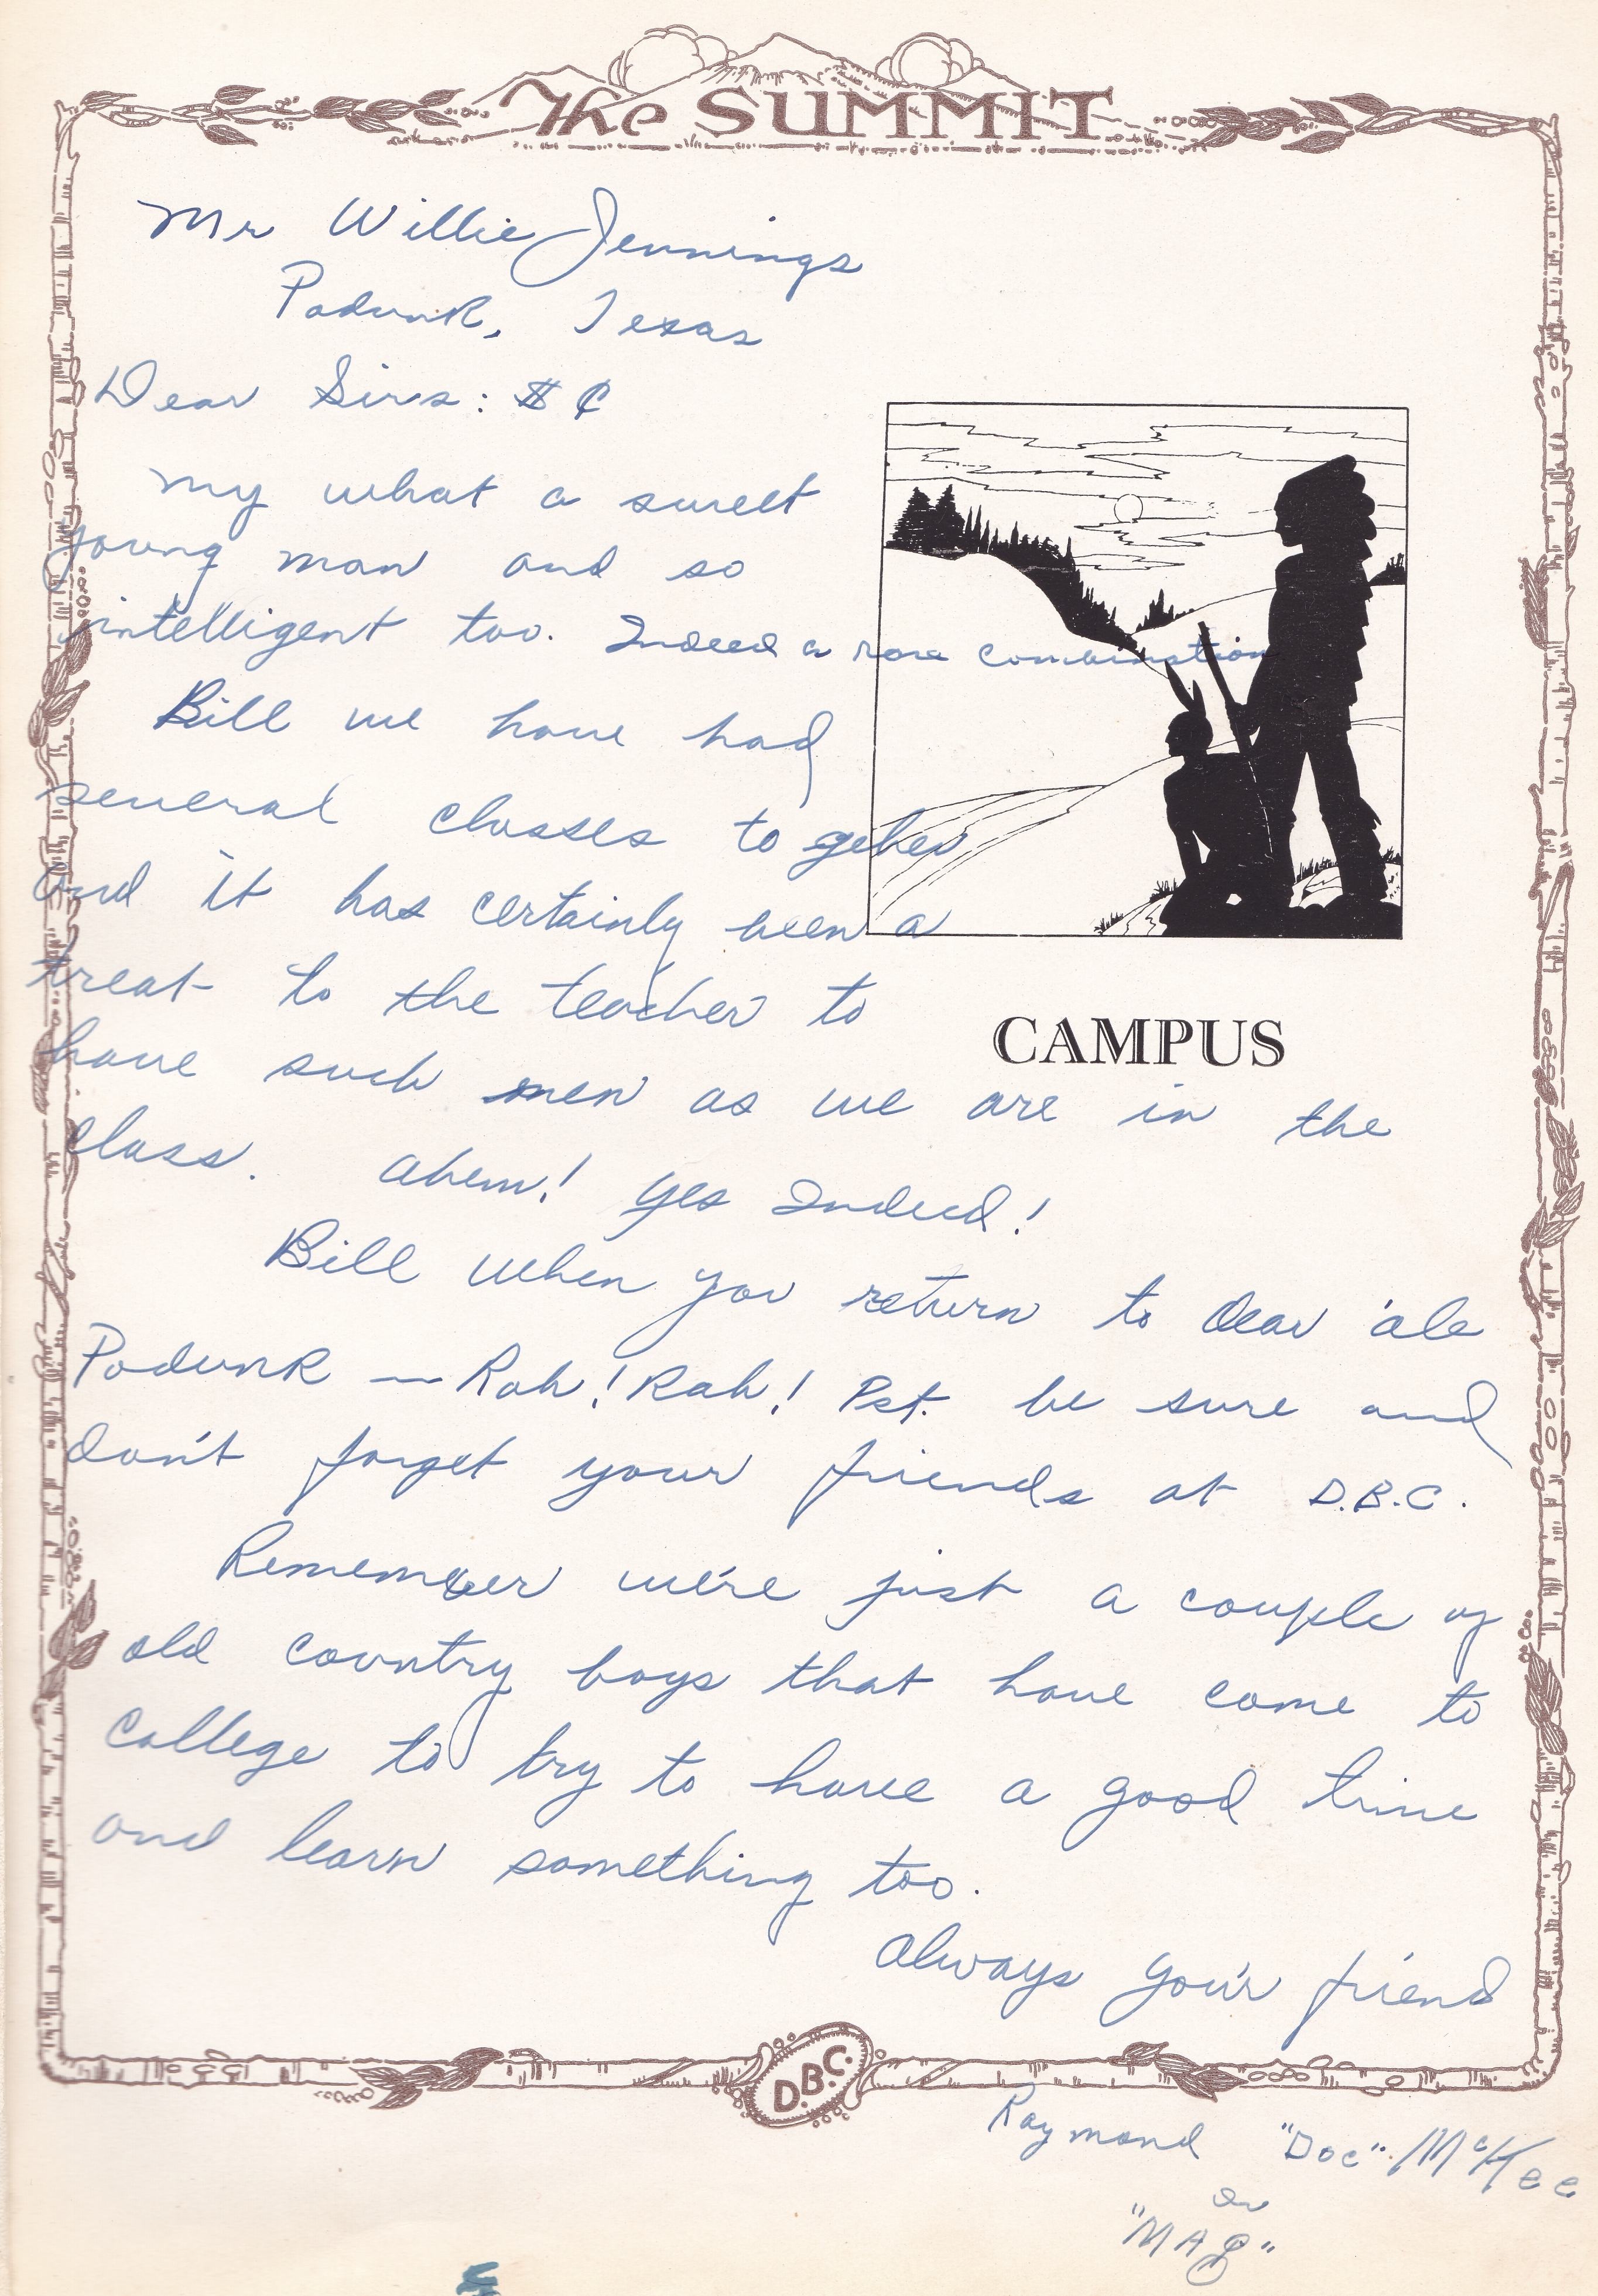 The SUMMIT
Mr Willie Jennings
Podunk, Texas
Dear Sirs: $ ¢
My what a sweet
young man and so
intelligent too. Indeed a rare combination
Bill we have had
several classes to geher
and it has certainly been a
treat to the teacher to
have such men as we are in the
class. Ahem! Yes Indeed!
Bill when you return to dear 'ale
Podunk — Rah! Rah! Pst. be sure and
don't forget your friends at D.B.C.
Remember we're just a couple of
old country boys that have come to
college to try to have a good time
and learn something too.
Always you'r friend
CAMPUS
D.B.C.
Raymond "Doc" McKee
or
"MAG"